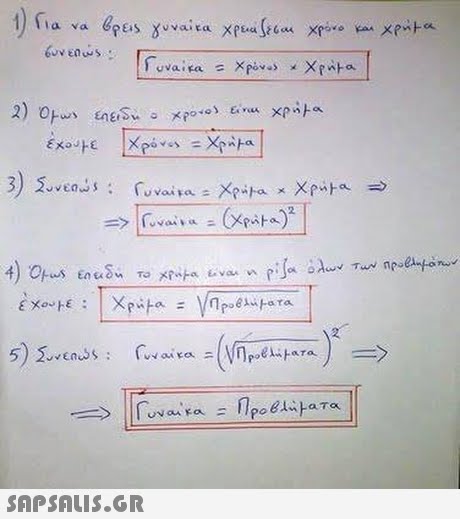 1) Για να βρεις γυναίκα χρειάζεσαι χρόνο και χρήμα
συνεπώς : Γυναίκα = Χρόνος × Χρήμα
2) Όμως επειδή ο χρόνος είναι χρήμα
έχουμε Χρόνος = Χρήμα
3) Συνεπώς : Γυναίκα = Χρήμα × Χρήμα ⇒
⇒ Γυναίκα = (Χρήμα)²
4) Όμως επειδή το χρήμα είναι η ρίζα όλων των προβλημάτων
έχουμε : Χρήμα = √Προβλήματα
5) Συνεπώς : Γυναίκα = (√Προβλήματα)² ⇒
⇒ Γυναίκα = Προβλήματα
SAPSALIS.GR